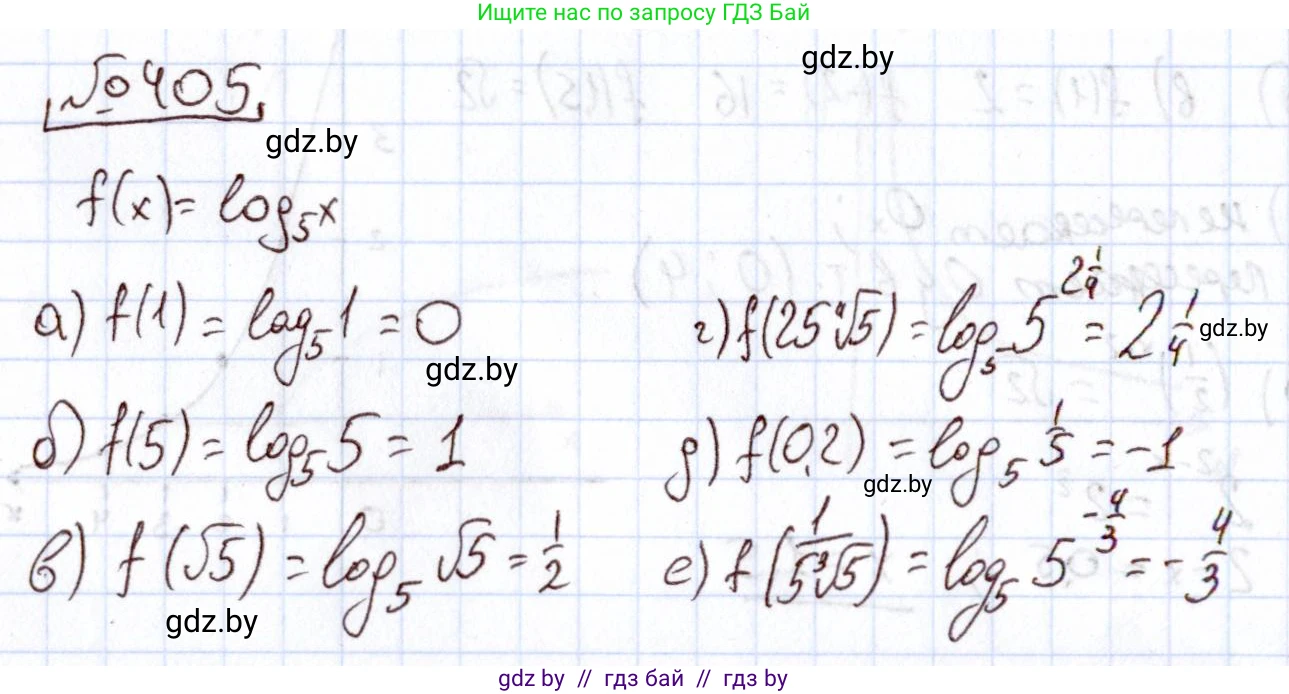 Ищите нас по запросу ГДЗ Бай
gdz.by
№405
gdz.by
f(x) = log₅x
а) f(1) = log₅1 = 0
gdz.by
б) f(5) = log₅5 = 1
в) f(√5) = log₅√5 = 1/2
gdz.by
г) f(25⁴√5) = log₅5^(2 1/4) = 2 1/4
gdz.by
д) f(0,2) = log₅ 1/5 = -1
gdz.by
е) f(1/(5³√5)) = log₅5^(-4/3) = -4/3
gdz.by // гдз бай // гдз by